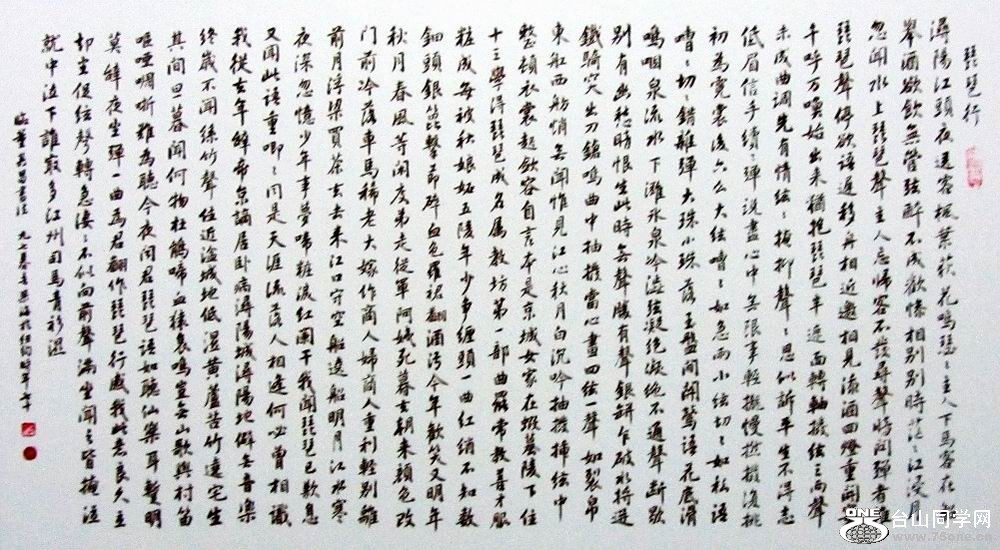 琵琶行
潯陽江頭夜送客楓葉荻花鳴瑟々主人下馬客在船
舉酒欲飲無管弦醉不成歡慘相別別時茫々江浸月
忽聞水上琵琶聲主人忘歸客不發尋聲暗問彈者誰
琵琶聲停欲語遲移舟相近邀相見添酒回燈重開宴
千呼万喚始出來猶抱琵琶半遮面轉軸撥絃三両聲
未成曲調先有情絃々掩抑聲々思似訴平生不得志
低眉信手續々彈說盡心中無限事輕攏慢撚撥復挑
初為霓裳後六么大絃嘈々如急雨小絃切々如私語
嘈々切々錯雜彈大珠小珠落玉盤間關鶯語花底滑
嗚咽泉流水下灘氷泉冷澁絃凝絕凝絕不通聲斷歇
別有幽愁暗恨生此時無聲勝有聲銀缾乍破水將迸
鐵騎突出刀鎗鳴曲中抽撥當心畫四絃一聲如裂帛
東船西舫悄無聞惟見江心秋月白沉吟抽撥插絃中
整頓衣裳起斂容自言本是京城女家在蝦蟇陵下住
十三學得琵琶成名屬教坊第一部曲罷常教善才服
粧成每被秋娘妬五陵年少爭纏頭一曲紅綃不知數
鈿頭銀篦擊節碎血色羅裙翻酒污今年歡笑又明年
秋月春風等閑度弟走從軍阿姨死暮去朝來顏色改
門前冷落車馬稀老大嫁作商人婦商人重利輕別離
前月浮梁買茶去去來江口守空船遶船明月江水寒
夜深忽憶少年事夢啼粧淚紅闌干我聞琵琶已歎息
又聞此語重唧々同是天涯淪落人相逢何必曾相識
我從去年辭帝京謫居臥病潯陽城潯陽地僻無音樂
終歲不聞絲竹聲住近湓城地低濕黃蘆苦竹遶宅生
其間旦暮聞何物杜鵑啼血猿哀鳴豈無山歌與村笛
嘔啞啁哳難為聽今夜聞君琵琶語如聽仙樂耳暫明
莫辭夜坐彈一曲為君翻作琵琶行感我此言良久立
却坐促絃聲轉急淒々不似向前聲滿坐聞之皆掩泣
就中泣下誰最多江州司馬青衫濕
臨董其昌書法 九七暮春 於紐約時年七十
ONE
台山同学网
www.75one.cn